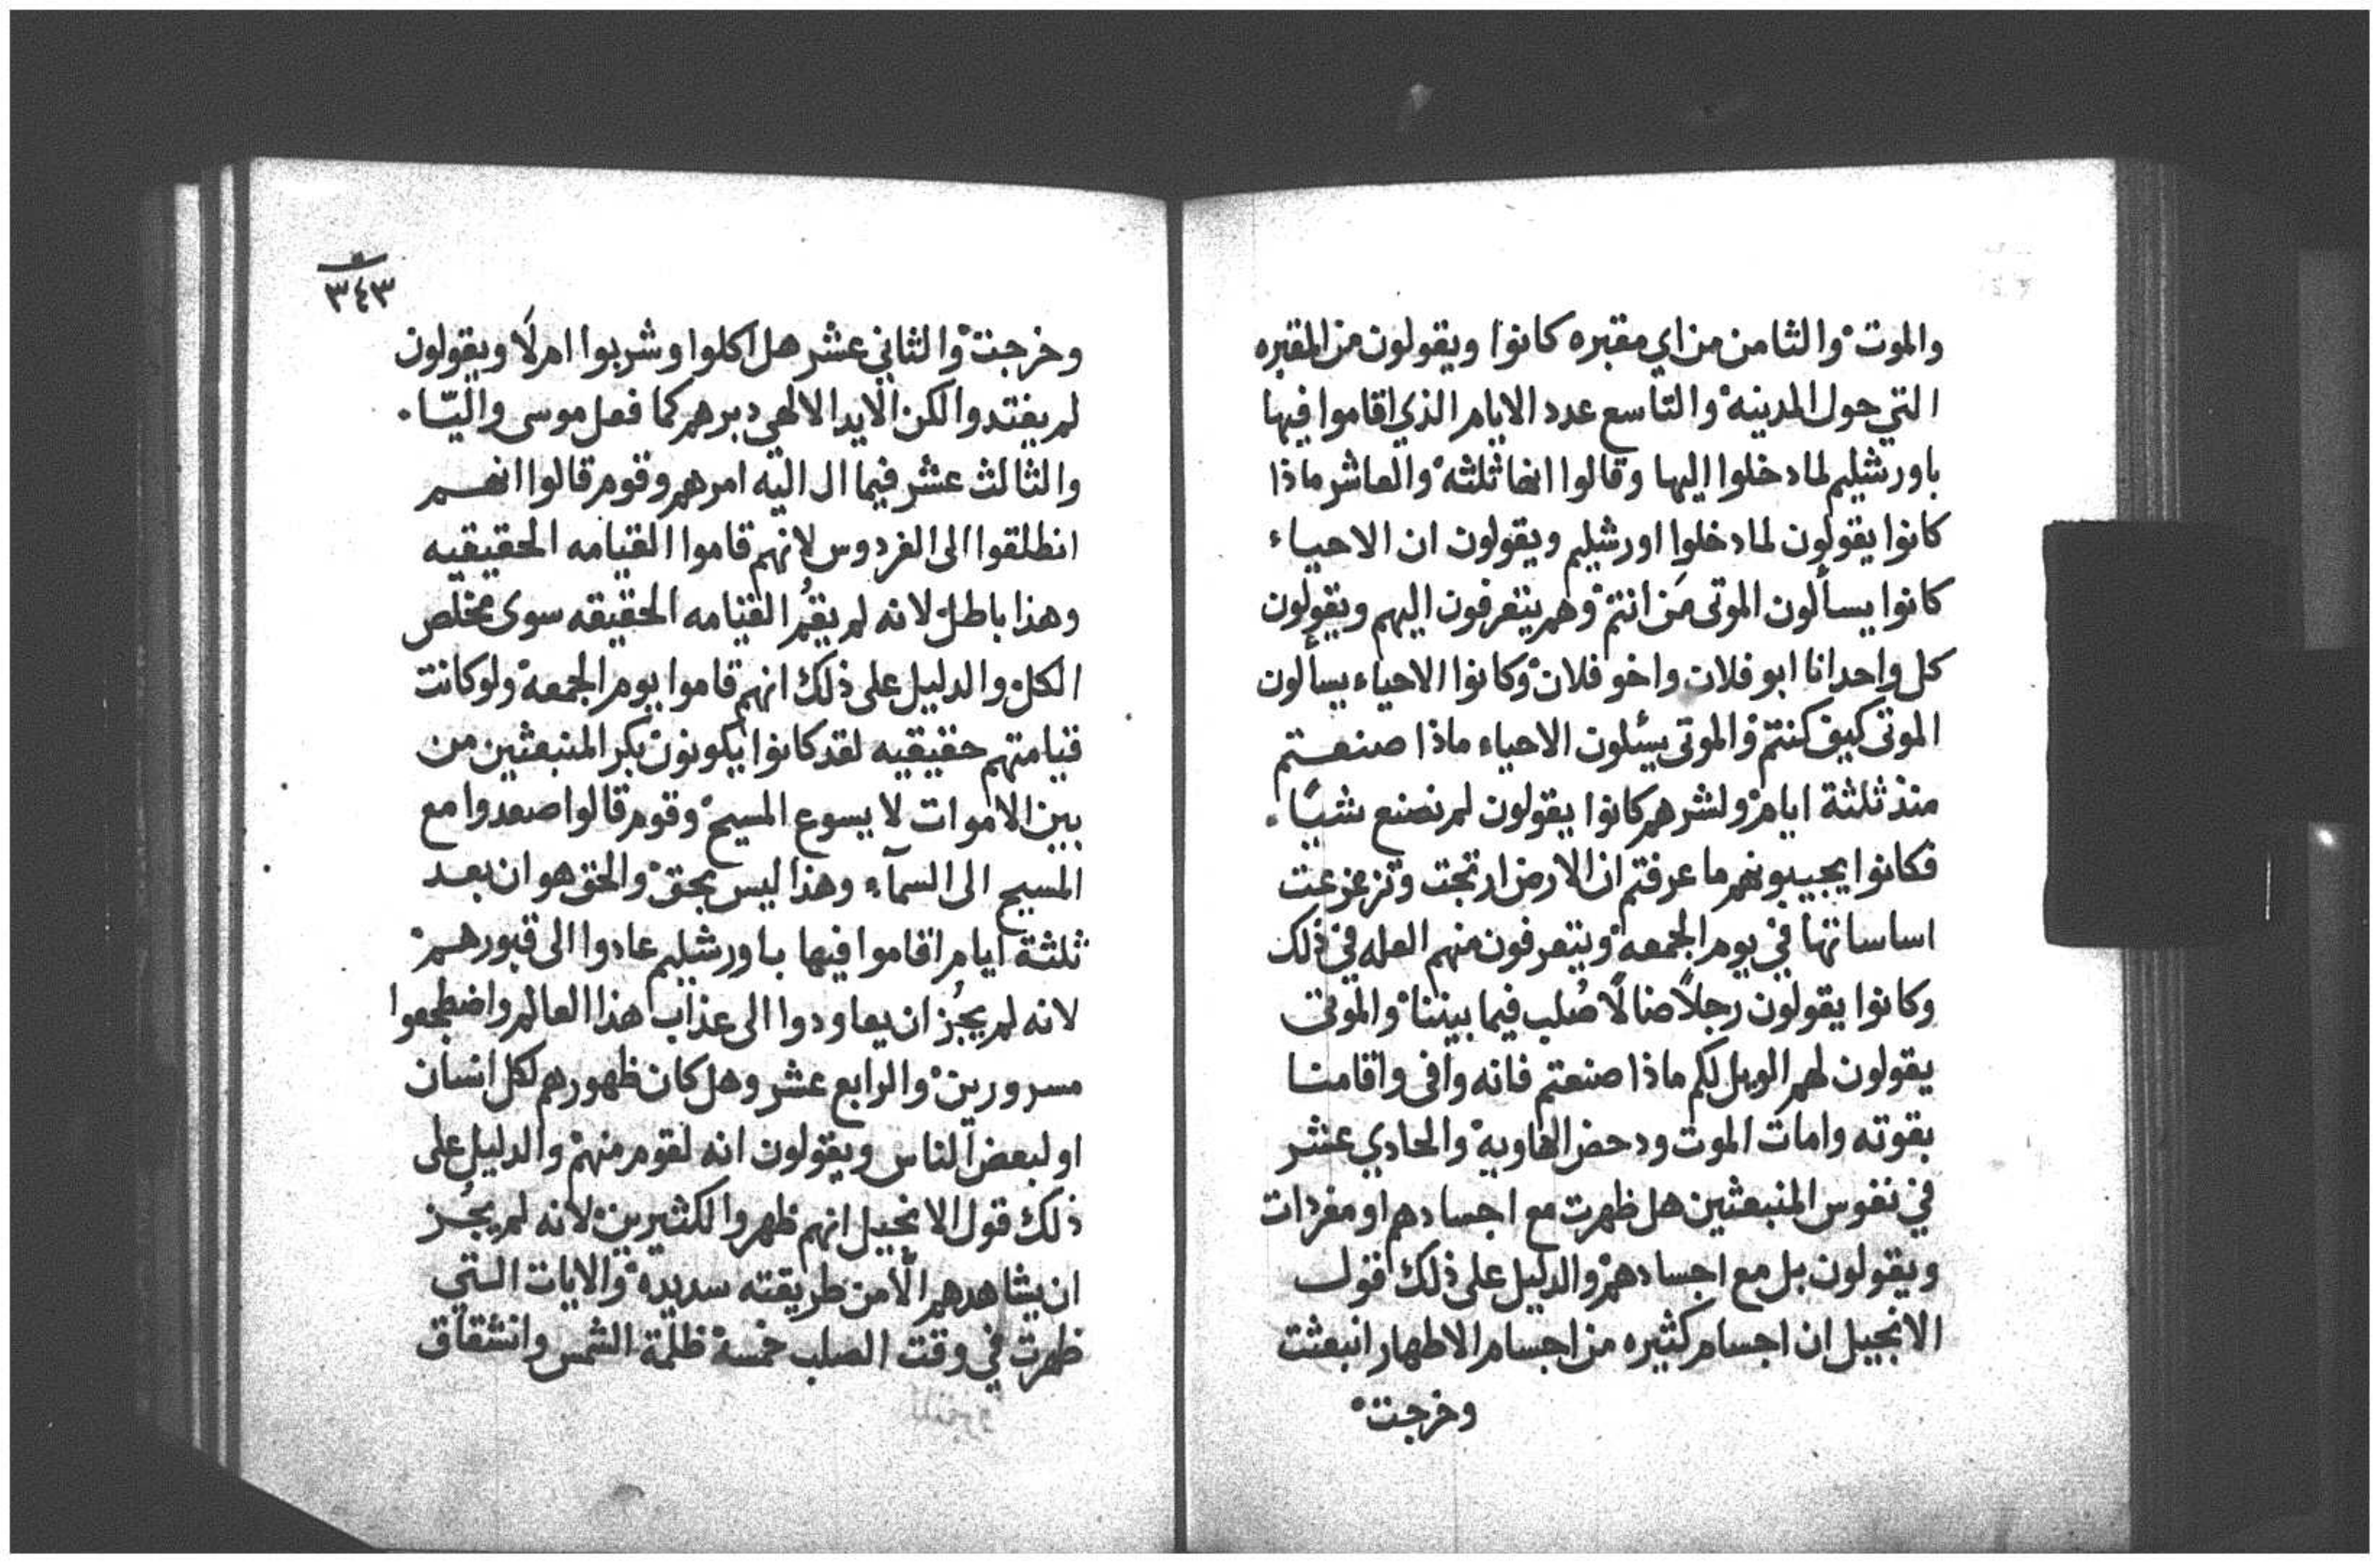 والموت والثامن من اي مقبره كانوا ويقولون من المقبره
التي حول المدينه والتاسع عدد الايام الذي اقاموا فيها
باورشليم لما دخلوا اليها وقالوا انها ثلثه والعاشر ماذا
كانوا يقولون لما دخلوا اورشليم ويقولون ان الاحياء
كانوا يسألون الموتى مَن انتم وهم يتعرفون اليهم ويقولون
كل واحد انا ابو فلان واخو فلان وكانوا الاحياء يسألون
الموتى كيف كنتم والموتى يسئلون الاحياء ماذا صنعتم
منذ ثلثة ايام ولشرهم كانوا يقولون لم نصنع شيئًا.
فكانوا يجيبونهم ما عرفتم ان الارض ارتجت وتزعزعت
اساساتها في يوم الجمعه ويتعرفون منهم العله في ذلك
وكانوا يقولون رجلاً ضالاً صُلب فيما بيننا والموتى
يقولون لهم الويل لكم ماذا صنعتم فانه وافى واقامنا
بقوته وامات الموت ودحض الهاويه والحادي عشر
في نفوس المنبعثين هل ظهرت مع اجسادهم او مفردات
ويقولون بل مع اجسادهم والدليل على ذلك قول
الانجيل ان اجسام كثيره من اجسام الاطهار انبعثت
وخرجت
٣٤٣
وخرجت والثاني عشر هل اكلوا وشربوا ام لَا ويقولون
لم يغتدوا لكن الايد الالهي دبرهم كما فعل موسى واليّا.
والثالث عشر فيما ال اليه امرهم وقوم قالوا انهم
انطلقوا الى الفردوس لانهم قاموا القيامه الحقيقيه
وهذا باطل لانه لم يقُم القيامه الحقيقه سوى مخلص
الكل والدليل على ذلك انهم قاموا يوم الجمعه ولو كانت
قيامتهم حقيقيه لقد كانوا يكونون بكر المنبعثين من
بين الاموات لا يسوع المسيح وقوم قالوا صعدوا مع
المسيح الى السمآء وهذا ليس بحق والحق هو ان بعد
ثلثة ايام اقاموا فيها باورشليم عادوا الى قبورهم
لانه لم يجُز ان يعاودوا الى عذاب هذا العالم واضطجعوا
مسرورين والرابع عشر وهل كان ظهورهم لكل انسان
او لبعض الناس ويقولون انه لقوم منهم والدليل على
ذلك قول الانجيل انهم ظهروا لكثيرين لانه لم يجُز
ان يشاهدهم الّا من طريقته سديده والايات التي
ظهرت في وقت الصلب خمسة ظلمة الشمس وانشقاق